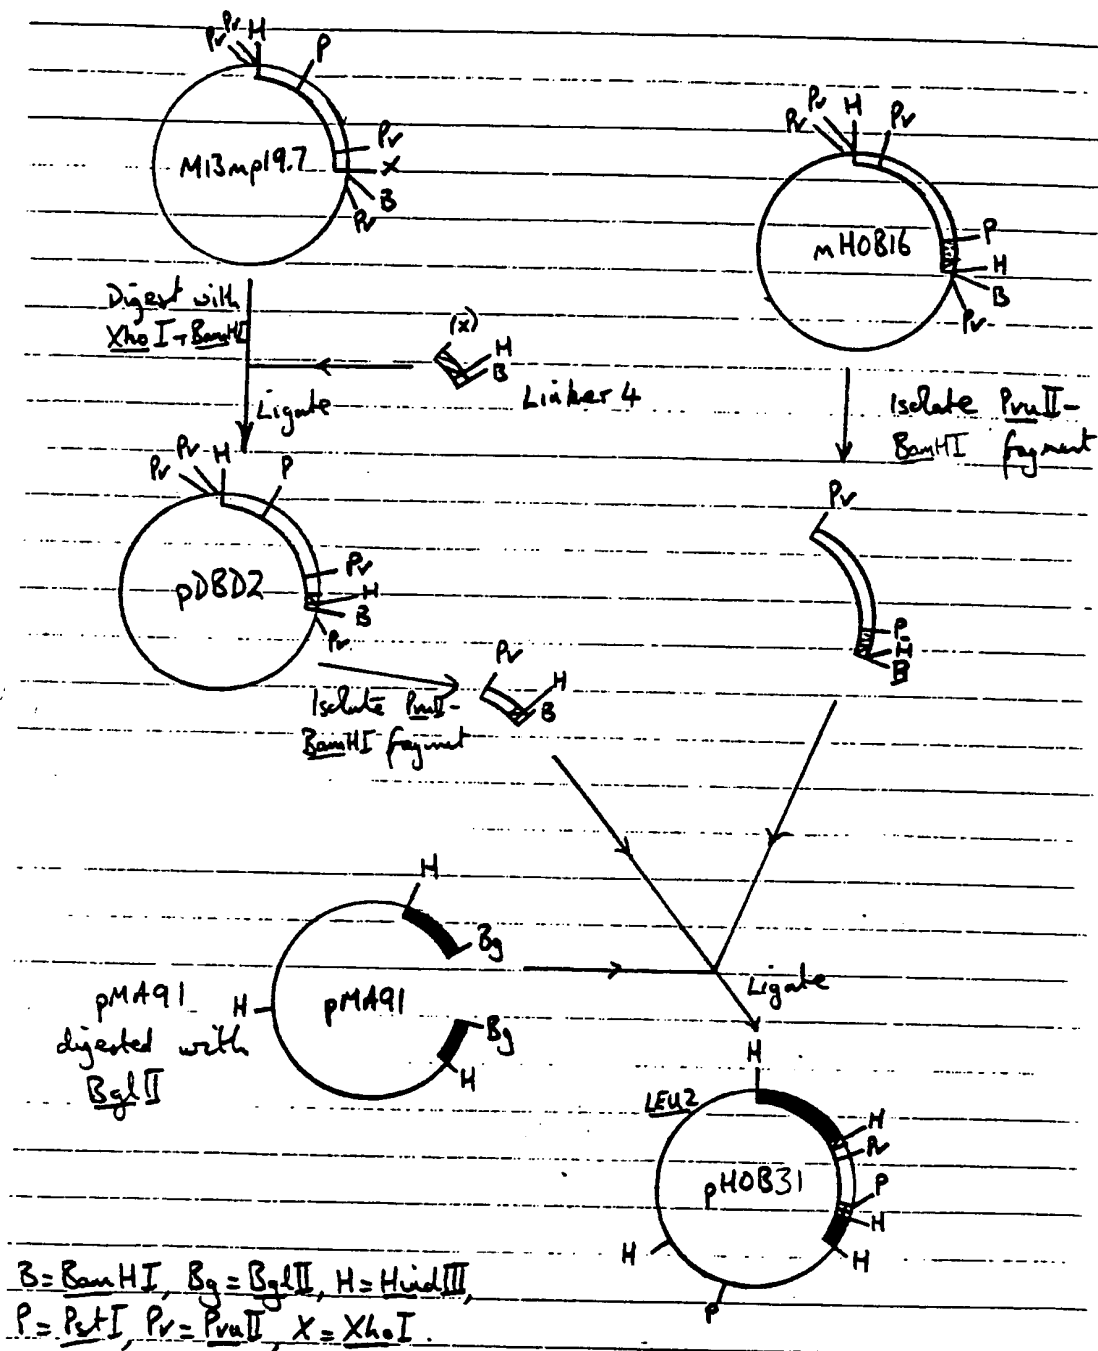 Pv Pv H
P
Pv
X
B
Pv
M13mp19.7
Pv Pv H Pv
P
H
B
Pv
mHOB16
Digest with
XhoI + BamHI
(X)
H
B
Linker 4
Ligate
Isolate PvuII-
BamHI fragment
Pv Pv H P
Pv
H
B
Pv
pDBD2
Pv
P
H
B
Isolate PvuII-
BamHI fragment
Pv
H
B
H
Bg
H
Bg
H
pMA91
pMA91
digested with
BglII
Ligate
H
LEU2
H
Pv
P
H
H
H
P
pHOB31
B = BamHI, Bg = BglII, H = HindIII,
P = PstI, Pv = PvuII, X = XhoI.